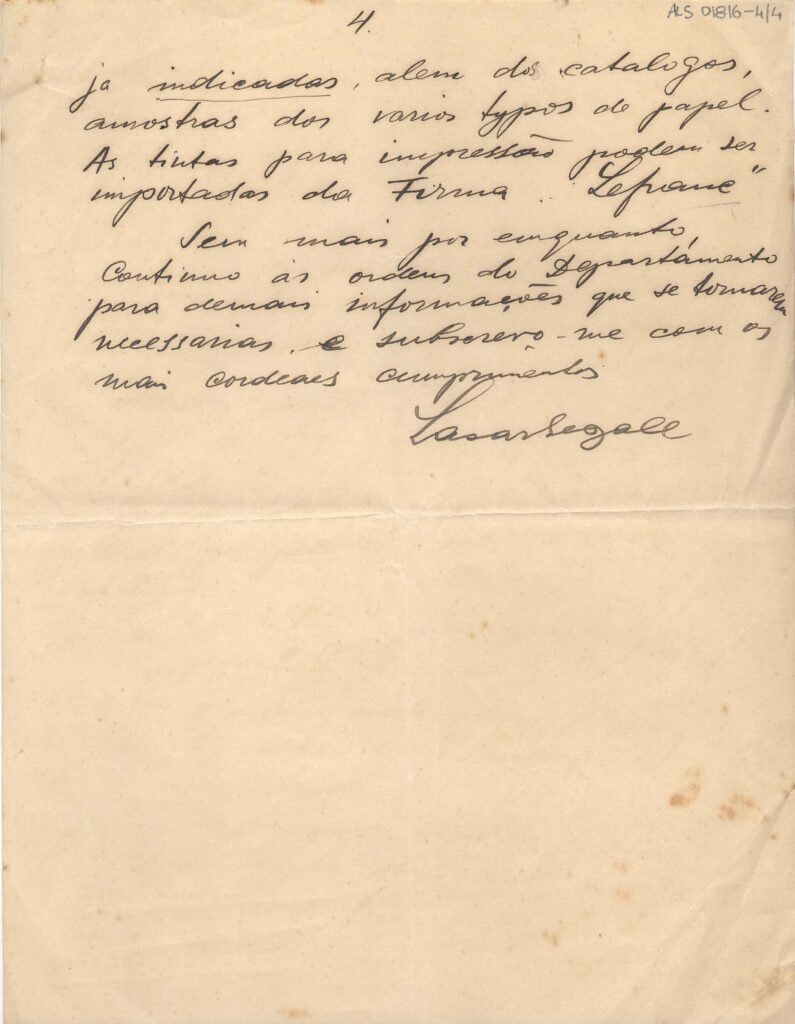 4.
ALS 01816-4/4
ja indicadas, alem dos catalogos,
amostras dos varios typos de papel.
As tintas para impressão podem ser
importadas da Firma "Lefranc"
Sem mais por emquanto,
Continuo às ordens do Departamento
para demais informações que se tornarem
necessarias, e subscrevo-me com os
mais cordeaes cumprimentos
Lasar Segall